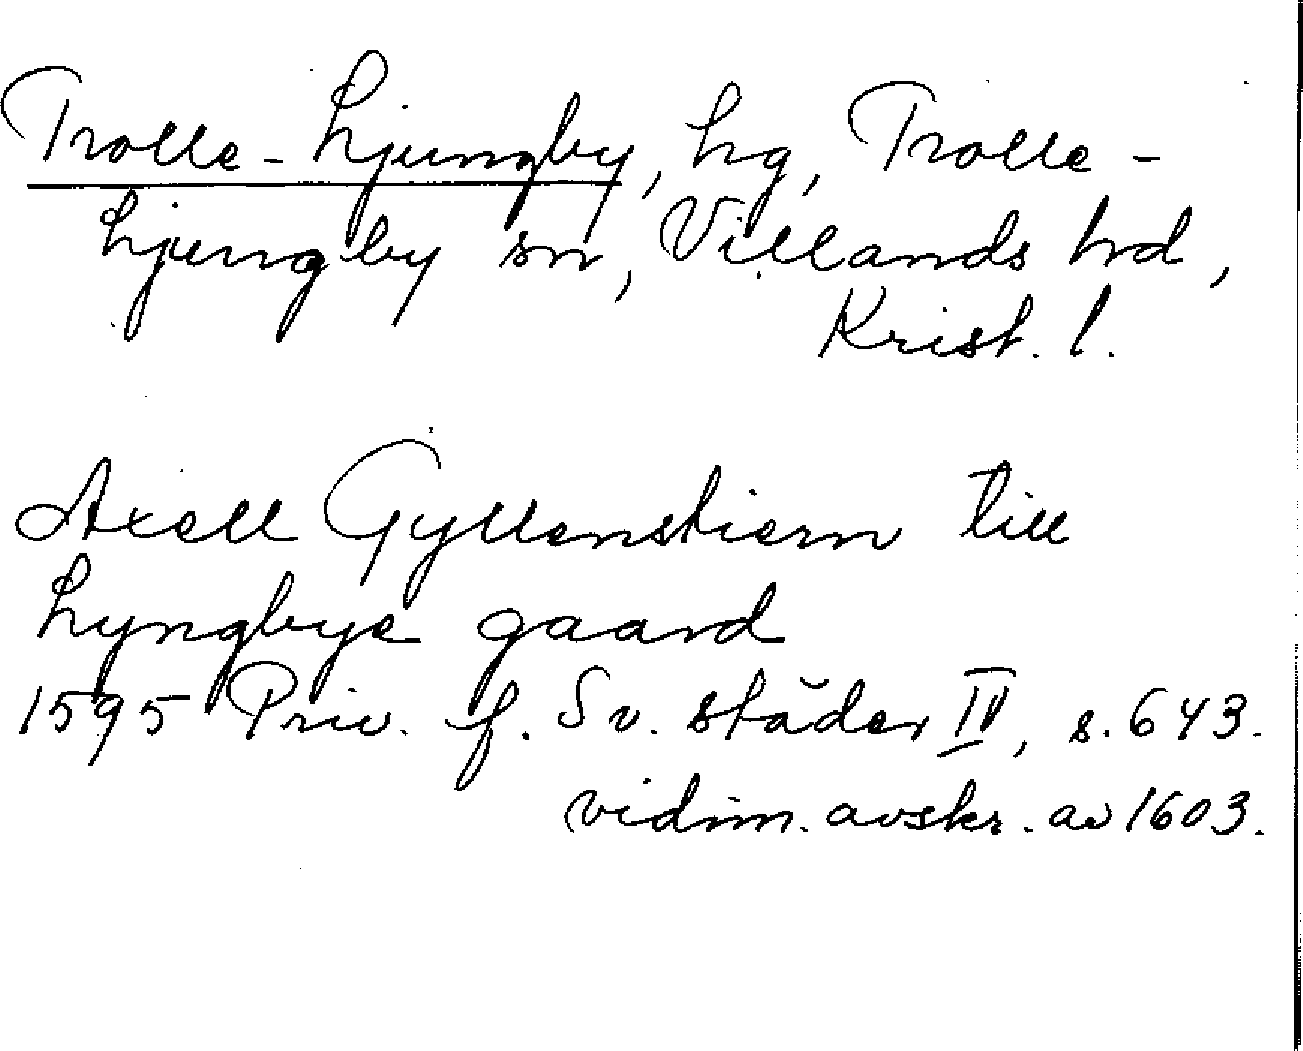 Trolle-Ljungby, hg, Trolle-
Ljungby sn, Villands hd,
Krist. l.
Axell Gyllenstiern till
Lyngbye gaard
1595 Priv. f. Sv. städer IV, s. 643.
vidim. avskr. av 1603.